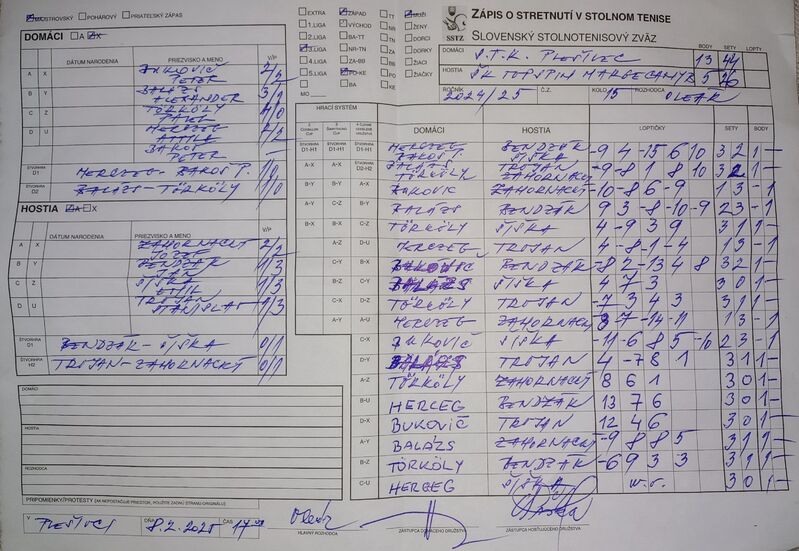 MAJSTROVSKÝ POHÁROVÝ PRIATEĽSKÝ ZÁPAS
DOMÁCI A X
DÁTUM NARODENIA PRIEZVISKO A MENO V/P
A X BUKOVIČ PETER 2/2
B Y BALÁZS ALEXANDER 3/1
C Z TÖRKÖLY PAVEL 4/0
D U HERCZEG ATTILA 2/2
BAKOŠ PETER
ŠTVORHRA D1 HERCZEG - BAKOŠ P. 1/0
ŠTVORHRA D2 BALÁZS - TÖRKÖLY 1/0
HOSTIA A X
DÁTUM NARODENIA PRIEZVISKO A MENO V/P
A X ZAHORNACKÝ JOZEF 2/2
B Y BENDZÁK JÁN 1/3
C Z ŠIŠKA 1/3
D U TROJAN STANISLAV 1/3
ŠTVORHRA D1 BENDZÁK - ŠIŠKA 0/1
ŠTVORHRA H2 TROJAN - ZAHORNACKÝ 0/1
DOMÁCI
HOSTIA
ROZHODCA
PRIPOMIENKY/PROTESTY (AK NEPOSTAČUJE PRIESTOR, POUŽITE ZADNÚ STRANU ORIGINÁLU)
V PLEŠIVCI DŇA 8.2.2025 ČAS 17
HLAVNÝ ROZHODCA
ZÁSTUPCA DOMÁCEHO DRUŽSTVA
ZÁSTUPCA HOSŤUJÚCEHO DRUŽSTVA
EXTRA ZÁPAD TT MUŽI
1.LIGA VÝCHOD NR ŽENY
2.LIGA BA-TT TN DORCI
3.LIGA NR-TN ZA DORKY
4.LIGA ZA-BB BB ŽIACI
5.LIGA PO-KE PO ŽIAČKY
BA KE
MO
SSTZ
ZÁPIS O STRETNUTÍ V STOLNOM TENISE
SLOVENSKÝ STOLNOTENISOVÝ ZVÄZ
BODY SETY LOPTY
DOMÁCI S.T.K. PLEŠIVEC 13 44
HOSTIA ŠK TOPSPIN MARGECANY 5 26
ROČNÍK 2024/25 Č.Z. KOLO 15 ROZHODCA OLEÁR
HRACÍ SYSTÉM
DOMÁCI HOSTIA LOPTIČKY SETY BODY
ŠTVORHRA D1-H1 HERCZEG BAKOŠ P. BENDZÁK ŠIŠKA -9 4 -15 6 10 3 2 1 -
A-X BALÁZS TÖRKÖLY TROJAN ZAHORNACKÝ -9 -8 1 8 10 3 2 1 -
B-Y A-Y BUKOVIC ZAHORNACKÝ -10 -8 6 -9 1 3 - 1
A-Y C-Z BALÁZS BENDZÁK 9 3 -8 -10 -9 2 3 - 1
B-X TÖRKÖLY ŠIŠKA 4 -9 3 9 3 1 1 -
HERCZEG TROJAN 4 -8 -1 -4 1 3 - 1
BUKOVIC BENDZÁK -8 2 -13 4 8 3 2 1 -
BALÁZS ŠIŠKA 4 7 3 3 0 1 -
TÖRKÖLY TROJAN -7 3 4 3 3 1 1 -
HERCZEG ZAHORNACKÝ 7 -14 -11 1 3 - 1
C-X BUKOVIČ ŠIŠKA -11 -6 8 5 -10 2 3 - 1
D-Y BALÁZS TROJAN 4 -7 8 1 3 1 1 -
A-Z TÖRKÖLY ZAHORNACKÝ 8 6 1 3 0 1 -
B-U HERCEG BENDZÁK 13 7 6 3 0 1 -
D-X BUKOVIČ TROJAN 12 4 6 3 0 1 -
A-Y BALÁZS ZAHORNACKÝ -9 8 8 5 3 1 1 -
B-Z TÖRKÖLY BENDZÁK -6 9 3 3 3 1 1 -
C-U HERCEG ŠIŠKA w.o. 3 0 1 -